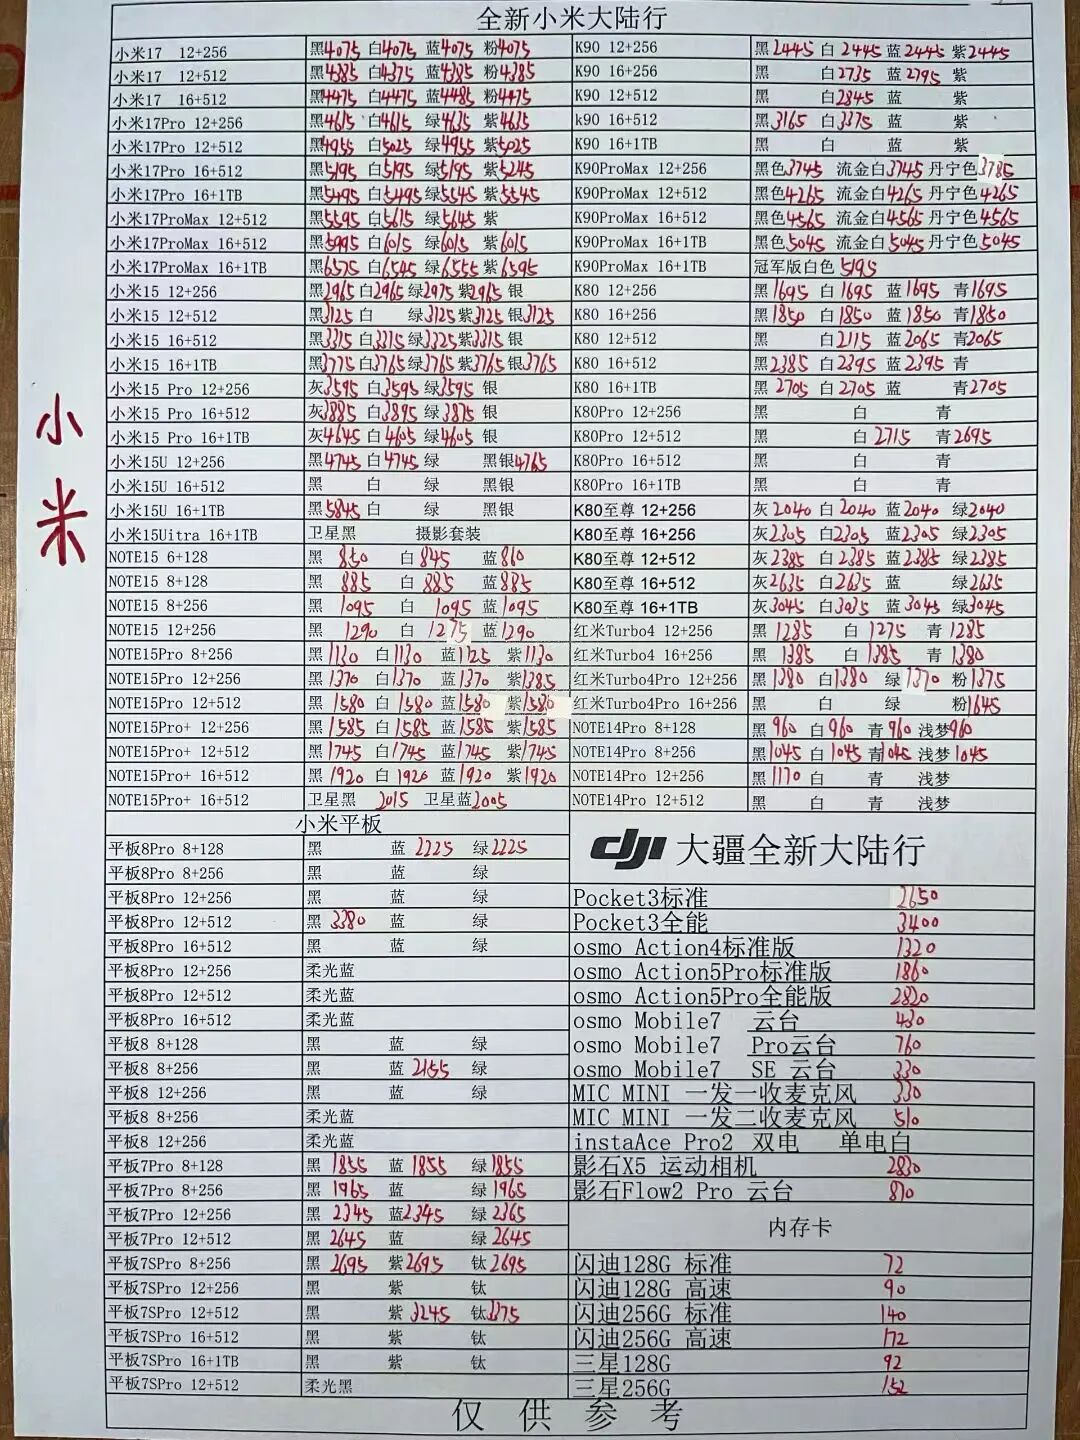 全新小米大陆行
小米17 12+256 黑4075 白4075 蓝4075 粉4075
小米17 12+512 黑4385 白4375 蓝4385 粉4385
小米17 16+512 黑4475 白4475 蓝4485 粉4475
小米17Pro 12+256 黑4615 白4615 绿4635 紫4635
小米17Pro 12+512 黑4955 白5025 绿4955 紫5025
小米17Pro 16+512 黑5195 白5195 绿5195 紫5245
小米17Pro 16+1TB 黑5495 白5495 绿5545 紫5545
小米17ProMax 12+512 黑5595 白5615 绿5645 紫
小米17ProMax 16+512 黑5995 白6015 绿6015 紫6015
小米17ProMax 16+1TB 黑6575 白6545 绿6555 紫6595
小米15 12+256 黑2965 白2965 绿2975 紫2965 银
小米15 12+512 黑3125 白 绿3125 紫3125 银3125
小米15 16+512 黑3315 白3315 绿3325 紫3315 银
小米15 16+1TB 黑3775 白3765 绿3765 紫3765 银3765
小米15 Pro 12+256 灰3595 白3595 绿3595 银
小米15 Pro 16+512 灰3885 白3895 绿3875 银
小米15 Pro 16+1TB 灰4645 白4605 绿4605 银
小米15U 12+256 黑4745 白4745 绿 黑银4765
小米15U 16+512 黑 白 绿 黑银
小米15U 16+1TB 黑5845 白 绿 黑银
小米15Uitra 16+1TB 卫星黑 摄影套装
NOTE15 6+128 黑 850 白 845 蓝 860
NOTE15 8+128 黑 885 白 885 蓝 885
NOTE15 8+256 黑 1095 白 1095 蓝 1095
NOTE15 12+256 黑 1290 白 1275 蓝 1290
NOTE15Pro 8+256 黑 1130 白 1130 蓝 1125 紫 1130
NOTE15Pro 12+256 黑 1370 白 1370 蓝 1370 紫 1385
NOTE15Pro 12+512 黑 1580 白 1580 蓝 1580 紫 1580
NOTE15Pro+ 12+256 黑 1585 白 1585 蓝 1585 紫 1585
NOTE15Pro+ 12+512 黑 1745 白 1745 蓝 1745 紫 1745
NOTE15Pro+ 16+512 黑 1920 白 1920 蓝 1920 紫 1920
NOTE15Pro+ 16+512 卫星黑 2015 卫星蓝 2005
K90 12+256 黑 2445 白 2445 蓝 2445 紫 2445
K90 16+256 黑 白 2735 蓝 2795 紫
K90 12+512 黑 白 2845 蓝 紫
k90 16+512 黑 3165 白 3375 蓝 紫
K90 16+1TB 黑 白 蓝 紫
K90ProMax 12+256 黑色3745 流金白3745 丹宁色3785
K90ProMax 16+256 黑色4265 流金白4265 丹宁色4265
K90ProMax 16+512 黑色4565 流金白4565 丹宁色4565
K90ProMax 16+1TB 黑色5045 流金白5045 丹宁色5045
K90ProMax 16+1TB 冠军版白色 5195
K80 12+256 黑 1695 白 1695 蓝 1695 青 1695
K80 16+256 黑 1850 白 1850 蓝 1850 青 1850
K80 12+512 黑 白 2115 蓝 2065 青 2065
K80 16+512 黑 2385 白 2395 蓝 2395 青
K80 16+1TB 黑 2705 白 2705 蓝 青 2705
K80Pro 12+256 黑 白 青
K80Pro 12+512 黑 白 2715 青 2695
K80Pro 16+512 黑 白 青
K80Pro 16+1TB 黑 白 青
K80至尊 12+256 灰 2040 白 2040 蓝 2040 绿 2040
K80至尊 16+256 灰 2305 白 2305 蓝 2305 绿 2305
K80至尊 12+512 灰 2385 白 2385 蓝 2385 绿 2385
K80至尊 16+512 灰 2635 白 2635 蓝 绿 2635
K80至尊 16+1TB 灰 3045 白 3035 蓝 3045 绿 3045
红米Turbo4 12+256 黑 1285 白 1275 青 1285
红米Turbo4 16+256 黑 1385 白 1385 青 1380
红米Turbo4Pro 12+256 黑 1380 白 1380 绿 1370 粉 1375
红米Turbo4Pro 16+256 黑 白 绿 粉 1645
NOTE14Pro 8+128 黑 960 白 960 青 960 浅梦 960
NOTE14Pro 8+256 黑 1045 白 1045 青 1045 浅梦 1045
NOTE14Pro 12+256 黑 1170 白 青 浅梦
NOTE14Pro 12+512 黑 白 青 浅梦
小米
小米平板
平板8Pro 8+128 黑 蓝 2225 绿 2225
平板8Pro 8+256 黑 蓝 绿
平板8Pro 12+256 黑 蓝 绿
平板8Pro 12+512 黑 3380 蓝 绿
平板8Pro 16+512 黑 蓝 绿
平板8Pro 12+256 柔光蓝
平板8Pro 12+512 柔光蓝
平板8Pro 16+512 柔光蓝
平板8 8+128 黑 蓝 绿
平板8 8+256 黑 蓝 2155 绿
平板8 12+256 黑 蓝 绿
平板8 8+256 柔光蓝
平板8 12+256 柔光蓝
平板7Pro 8+128 黑 1855 蓝 1855 绿 1855
平板7Pro 8+256 黑 1965 蓝 绿 1965
平板7Pro 12+256 黑 2345 蓝 2345 绿 2365
平板7Pro 12+512 黑 2645 蓝 绿 2645
平板7SPro 8+256 黑 2695 紫 2695 钛 2695
平板7SPro 12+256 黑 紫 钛
平板7SPro 12+512 黑 紫 3245 钛
平板7SPro 16+512 黑 紫 钛
平板7SPro 16+1TB 黑 紫 钛
平板7SPro 12+512 柔光黑
dji 大疆全新大陆行
Pocket3标准 2650
Pocket3全能 3400
osmo Action4标准版 1320
osmo Action5Pro标准版 1860
osmo Action5Pro全能版 2820
osmo Mobile7 云台 430
osmo Mobile7 Pro云台 760
osmo Mobile7 SE 云台 330
MIC MINI 一发一收麦克风 330
MIC MINI 一发二收麦克风 510
instaAce Pro2 双电 单电白
影石X5 运动相机 2830
影石Flow2 Pro 云台 810
内存卡
闪迪128G 标准 72
闪迪128G 高速 90
闪迪256G 标准 140
闪迪256G 高速 172
三星128G 92
三星256G 152
仅供参考